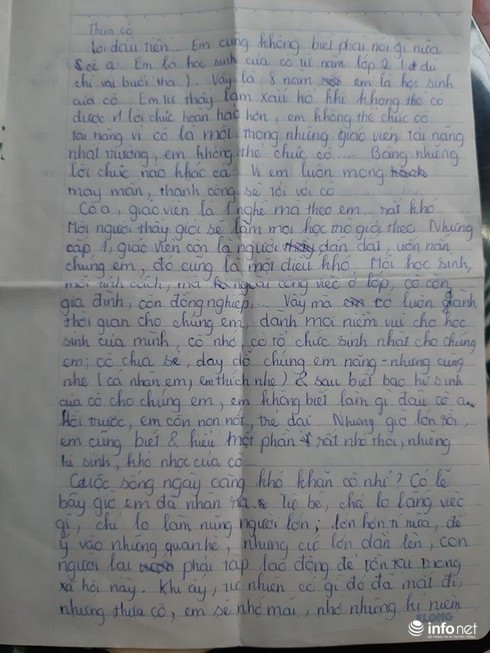 Thưa cô
Lời đầu tiên... Em cũng không biết phải nói gì nữa
cô ạ. Em là học sinh của cô từ năm lớp 2 (dù
chỉ vài buổi thôi)... Vậy là 8 năm em là học sinh
của cô. Em tự thấy làm xấu hổ khi không thể có
được 1 lời chúc hoàn hảo hơn, em không thể chúc cô
tài năng vì cô là một trong những giáo viên tài năng
nhất trường, em không thể chúc cô... Bằng những
lời chúc nào khác cả. Vì em luôn mong
may mắn, thành công sẽ tới với cô
Cô ạ, giáo viên là 1 nghề mà theo em... rất khó
Mỗi người thầy giỏi sẽ làm mọi học trò giỏi theo. Nhưng
cấp 1, giáo viên còn là người dẫn dắt, uốn nắn
chúng em, đó cũng là một điều khó. Mỗi học sinh,
mỗi tính cách, mà ngoài công việc ở lớp, cô còn
gia đình, còn đồng nghiệp... Vậy mà cô luôn dành
thời gian cho chúng em, dành mọi niềm vui cho học
sinh của mình, cô nhớ, cô tổ chức sinh nhật cho chúng
em; cô chia sẻ, dạy dỗ chúng em nặng - nhưng cũng
nhẹ (cá nhân em, em thích nhẹ) & sau biết bao hi sinh
của cô cho chúng em, em không biết làm gì đâu cô ạ.
Hồi trước, em còn non nớt, trẻ dại. Nhưng giờ lớn rồi,
em cũng biết & hiểu một phần rất nhỏ thôi, những
hi sinh, khó nhọc của cô
Cuộc sống ngày càng khó khăn cô nhỉ? Có lẽ
bây giờ em đã nhận ra. Từ bé, chả lo lắng việc
gì, chỉ lo làm nũng người lớn; lớn hơn tí nữa, để
ý vào những quan hệ, nhưng cứ lớn dần lên, con
người lại phải tập lao động để tồn tại trong
xã hội này. Khi ấy, tự nhiên có gì đó đã mất đi,
nhưng thưa cô, em sẽ nhớ mãi, nhớ những kỉ niệm
KLONG
infonet